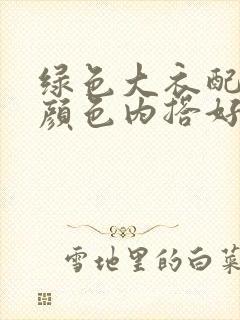 绿色大衣配
颜色内搭好
雪地里的白菜